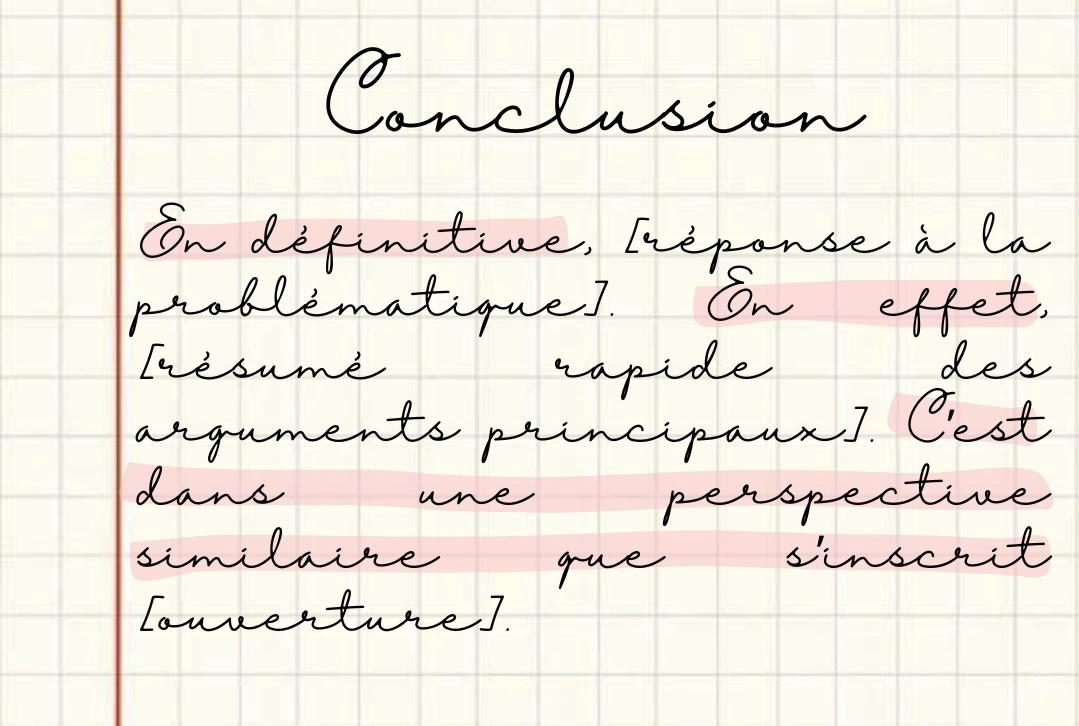 Conclusion
En définitive, [réponse à la
problématique]. En effet,
[résumé rapide des
arguments principaux]. C'est
dans une perspective
similaire que s'inscrit
[ouverture].